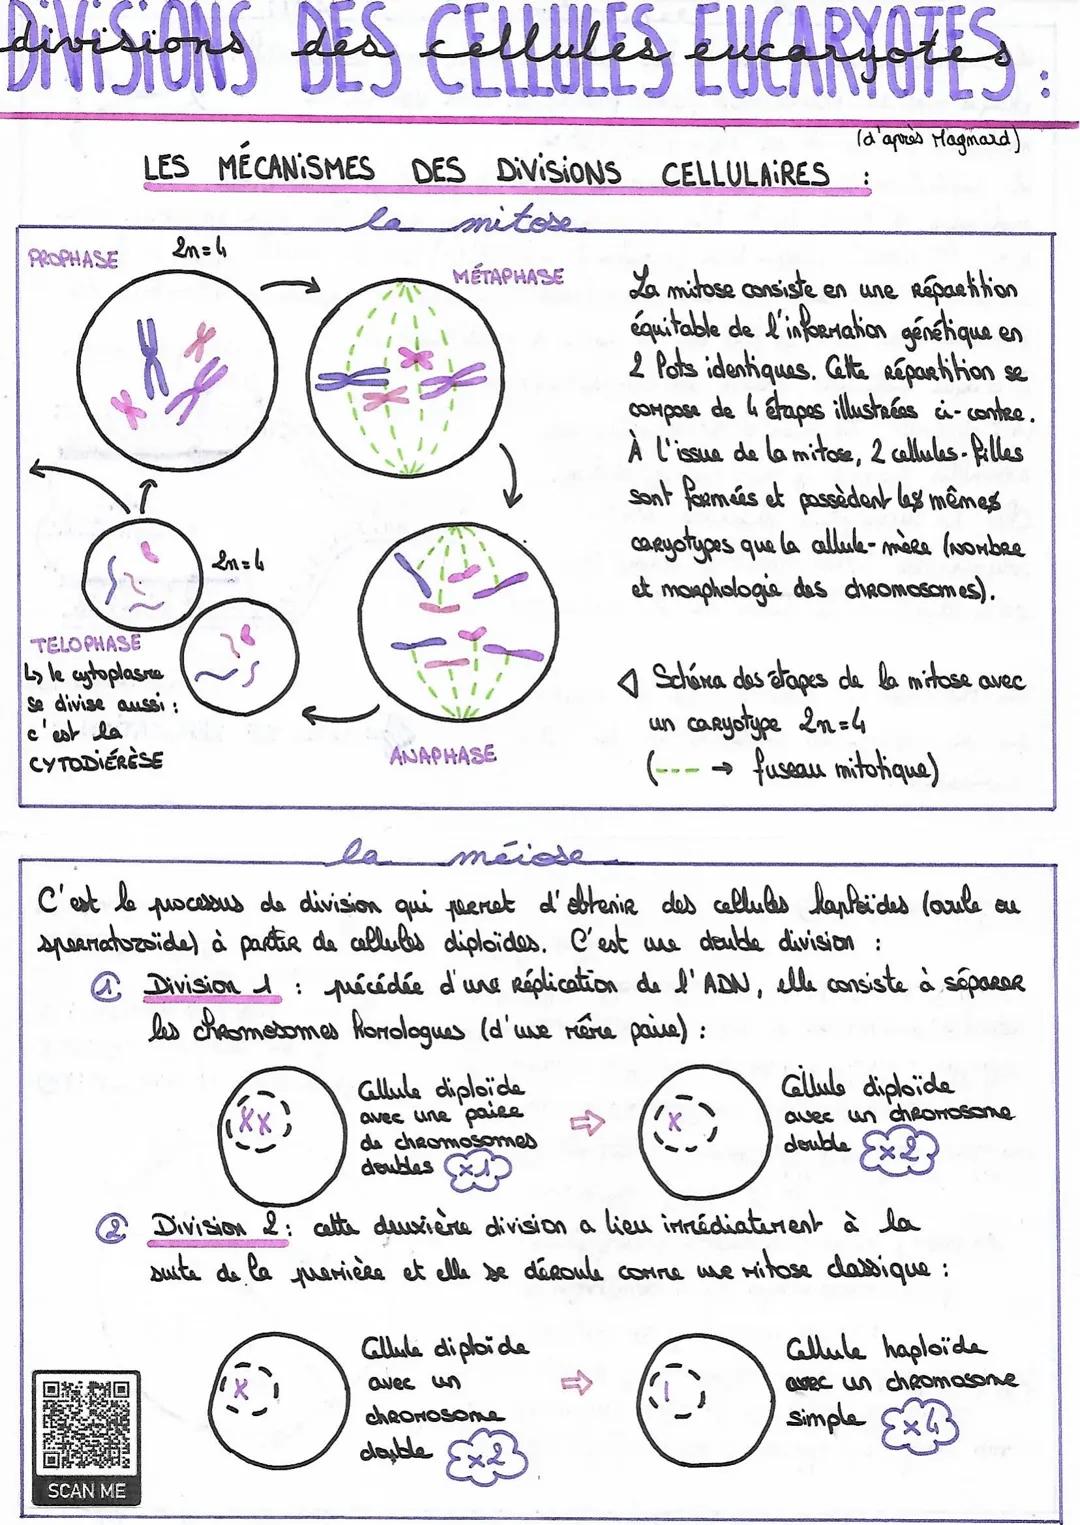 DIVISIONS DES CELLULES EUCARYOTES :
divisions des cellules eucaryotes
(d'après Magnard)
LES MÉCANISMES DES DIVISIONS CELLULAIRES :
la mitose
PROPHASE
2n=4
MÉTAPHASE
La mitose consiste en une répartition
équitable de l'information génétique en
2 lots identiques. Cette répartition se
compose de 4 étapes illustrées ci-contre.
À l'issue de la mitose, 2 cellules-filles
sont formées et possèdent les mêmes
caryotypes que la cellule-mère (nombre
et morphologie des chromosomes).
2n=4
TELOPHASE
↳ le cytoplasme
se divise aussi :
c'est la
CYTODIÉRÈSE
ANAPHASE
◁ Schéma des étapes de la mitose avec
un caryotype 2n=4
(---- → fuseau mitotique)
la méiose
C'est le processus de division qui permet d'obtenir des cellules haploïdes (ovule ou
spermatozoïde) à partir de cellules diploïdes. C'est une double division :
① Division 1 : précédée d'une réplication de l'ADN, elle consiste à séparer
les chromosomes homologues (d'une même paire) :
Cellule diploïde
avec une paire
de chromosomes
doubles x1
⇒
Cellule diploïde
avec un chromosome
double x2
② Division 2 : cette deuxième division a lieu immédiatement à la
suite de la première et elle se déroule comme une mitose classique :
Cellule diploïde
avec un
chromosome
double x2
⇒
Cellule haploïde
avec un chromosome
simple x4
SCAN ME